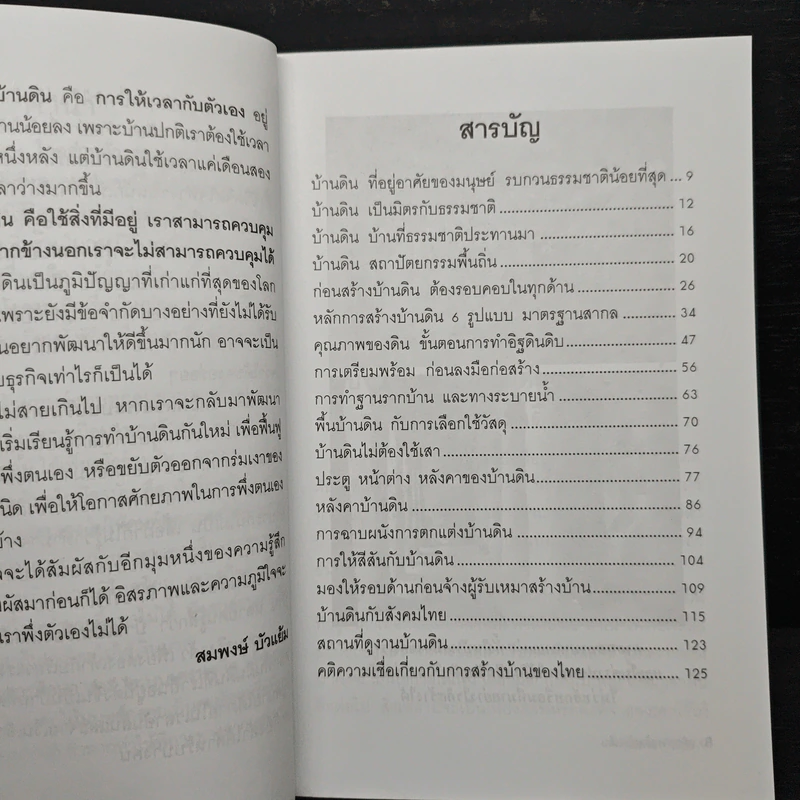 บ้านดิน คือ การให้เวลากับตัวเอง อยู่
านน้อยลง เพราะบ้านปกติเราต้องใช้เวลา
หนึ่งหลัง แต่บ้านดินใช้เวลาแค่เดือนสอง
ลาว่างมากขึ้น
น คือใช้สิ่งที่มีอยู่ เราสามารถควบคุม
ากข้างนอกเราจะไม่สามารถควบคุมได้
ดินเป็นภูมิปัญญาที่เก่าแก่ที่สุดของโลก
เพราะยังมีข้อจำกัดบางอย่างที่ยังไม่ได้รับ
นอยากพัฒนาให้ดีขึ้นมากนัก อาจจะเป็น
บธุรกิจเท่าไรก็เป็นได้
ไม่สายเกินไป หากเราจะกลับมาพัฒนา
เริ่มเรียนรู้การทำบ้านดินกันใหม่ เพื่อฟื้นฟู
พึ่งตนเอง หรือขยับตัวออกจากร่มเงาของ
นิด เพื่อให้โอกาสศักยภาพในการพึ่งตนเอง
บ้าง
จะได้สัมผัสกับอีกมุมหนึ่งของความรู้สึก
ผัสมาก่อนก็ได้ อิสรภาพและความภูมิใจจะ
เราพึ่งตัวเองไม่ได้
สมพงษ์ บัวแย้ม
สารบัญ
บ้านดิน ที่อยู่อาศัยของมนุษย์ รบกวนธรรมชาติน้อยที่สุด ... 9
บ้านดิน เป็นมิตรกับธรรมชาติ ........................................ 12
บ้านดิน บ้านที่ธรรมชาติประทานมา ................................ 16
บ้านดิน สถาปัตยกรรมพื้นถิ่น ........................................ 20
ก่อนสร้างบ้านดิน ต้องรอบคอบในทุกด้าน ........................ 26
หลักการสร้างบ้านดิน 6 รูปแบบ มาตรฐานสากล ................ 34
คุณภาพของดิน ขั้นตอนการทำอิฐดินดิบ .......................... 47
การเตรียมพร้อม ก่อนลงมือก่อสร้าง ............................... 56
การทำฐานรากบ้าน และทางระบายน้ำ ............................. 63
พื้นบ้านดิน กับการเลือกใช้วัสดุ ..................................... 70
บ้านดินไม่ต้องใช้เสา .................................................. 76
ประตู หน้าต่าง หลังคาของบ้านดิน .................................. 77
หลังคาบ้านดิน ......................................................... 86
การฉาบผนังการตกแต่งบ้านดิน ..................................... 94
การให้สีสันกับบ้านดิน ................................................ 104
มองให้รอบด้านก่อนจ้างผู้รับเหมาสร้างบ้าน ...................... 109
บ้านดินกับสังคมไทย .................................................. 115
สถานที่ดูงานบ้านดิน .................................................. 123
คติความเชื่อเกี่ยวกับการสร้างบ้านของไทย ........................ 125